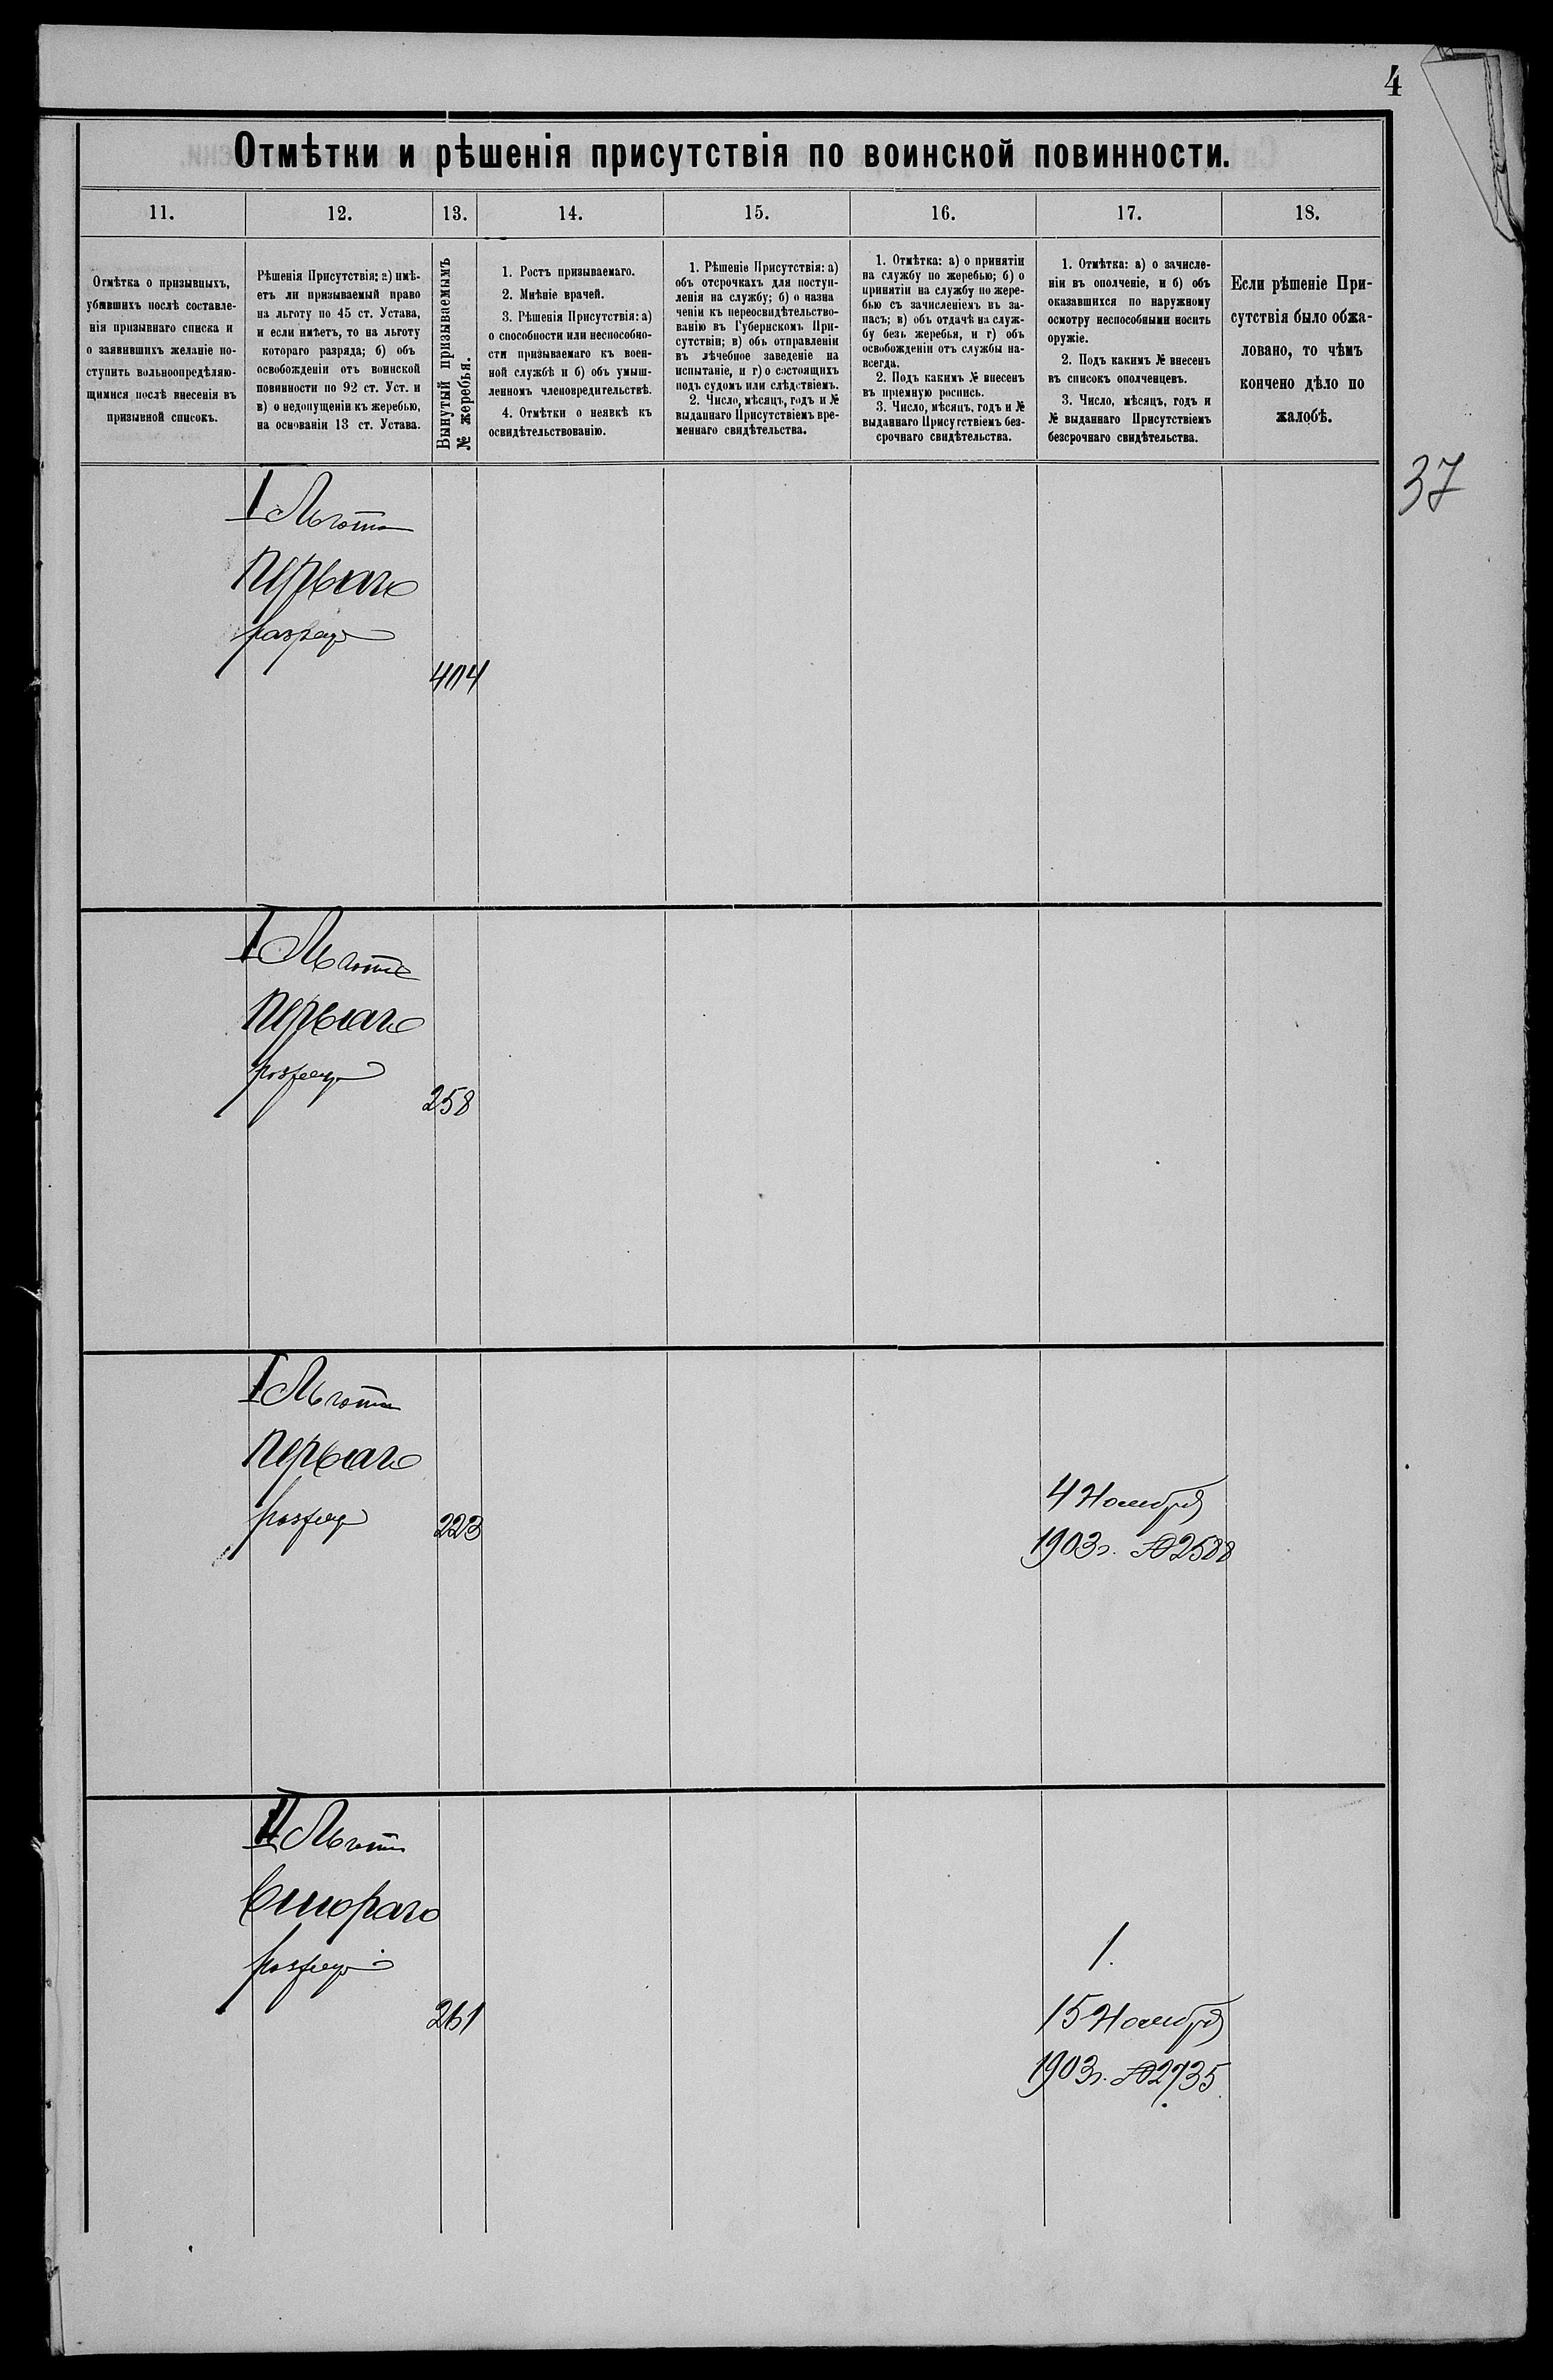 4
37
Отмѣтки и рѣшенія присутствія по воинской повинности.
11.
12.
13.
14.
15.
16.
17.
18.
Отмѣтка о призывныхъ,
убывшихъ послѣ составле-
нія призывнаго списка и
о заявившихъ желаніе по-
ступить вольноопредѣляю-
щимися послѣ внесенія въ
призывной списокъ.
Рѣшенія Присутствія: а) имѣ-
етъ ли призываемый право
на льготу по 45 ст. Устава,
и если имѣетъ, то на льготу
котораго разряда; б) объ
освобожденіи отъ воинской
повинности по 92 ст. Уст. и
в) о недопущеніи къ жеребью,
на основаніи 13 ст. Устава.
Вынутый призываемымъ
№ жеребья.
1. Ростъ призываемаго.
2. Мнѣніе врачей.
3. Рѣшенія Присутствія: а)
о способности или неспособно-
сти призываемаго къ воен-
ной службѣ и б) объ умыш-
ленномъ членовредительствѣ.
4. Отмѣтки о неявкѣ къ
освидѣтельствованію.
1. Рѣшеніе Присутствія: а)
объ отсрочкахъ для поступ-
ленія на службу; б) о назна
ченіи къ переосвидѣтельство-
ванію въ Губернскомъ При-
сутствіи; в) объ отправленіи
въ лѣчебное заведеніе на
испытаніе, и г) о состоящихъ
подъ судомъ или слѣдствіемъ.
2. Число, мѣсяцъ, годъ и №
выданнаго Присутствіемъ вре-
меннаго свидѣтельства.
1. Отмѣтка: а) о принятіи
на службу по жеребью; б) о
принятіи на службу по жере-
бью съ зачисленіемъ въ за-
пасъ; в) объ отдачѣ на служ-
бу безъ жеребья, и г) объ
освобожденіи отъ службы на-
всегда.
2. Подъ какимъ № внесенъ
въ пріемную роспись.
3. Число, мѣсяцъ, годъ и №
выданнаго Присутствіемъ без-
срочнаго свидѣтельства.
1. Отмѣтка: а) о зачисле-
ніи въ ополченіе, и б) объ
оказавшихся по наружному
осмотру неспособными носить
оружіе.
2. Подъ какимъ № внесенъ
въ списокъ ополченцевъ.
3. Число, мѣсяцъ, годъ и
№ выданнаго Присутствіемъ
безсрочнаго свидѣтельства.
Если рѣшеніе При-
сутствія было обжа-
ловано, то чѣмъ
кончено дѣло по
жалобѣ.
I Льгота
перваго
разряда
404
I Льгота
перваго
разряда
258
I Льгота
перваго
разряда
223
4 Ноября
1903г. № 2588
II Льгота
второго
разряда
261
1.
15 Ноября
1903г. № 2735